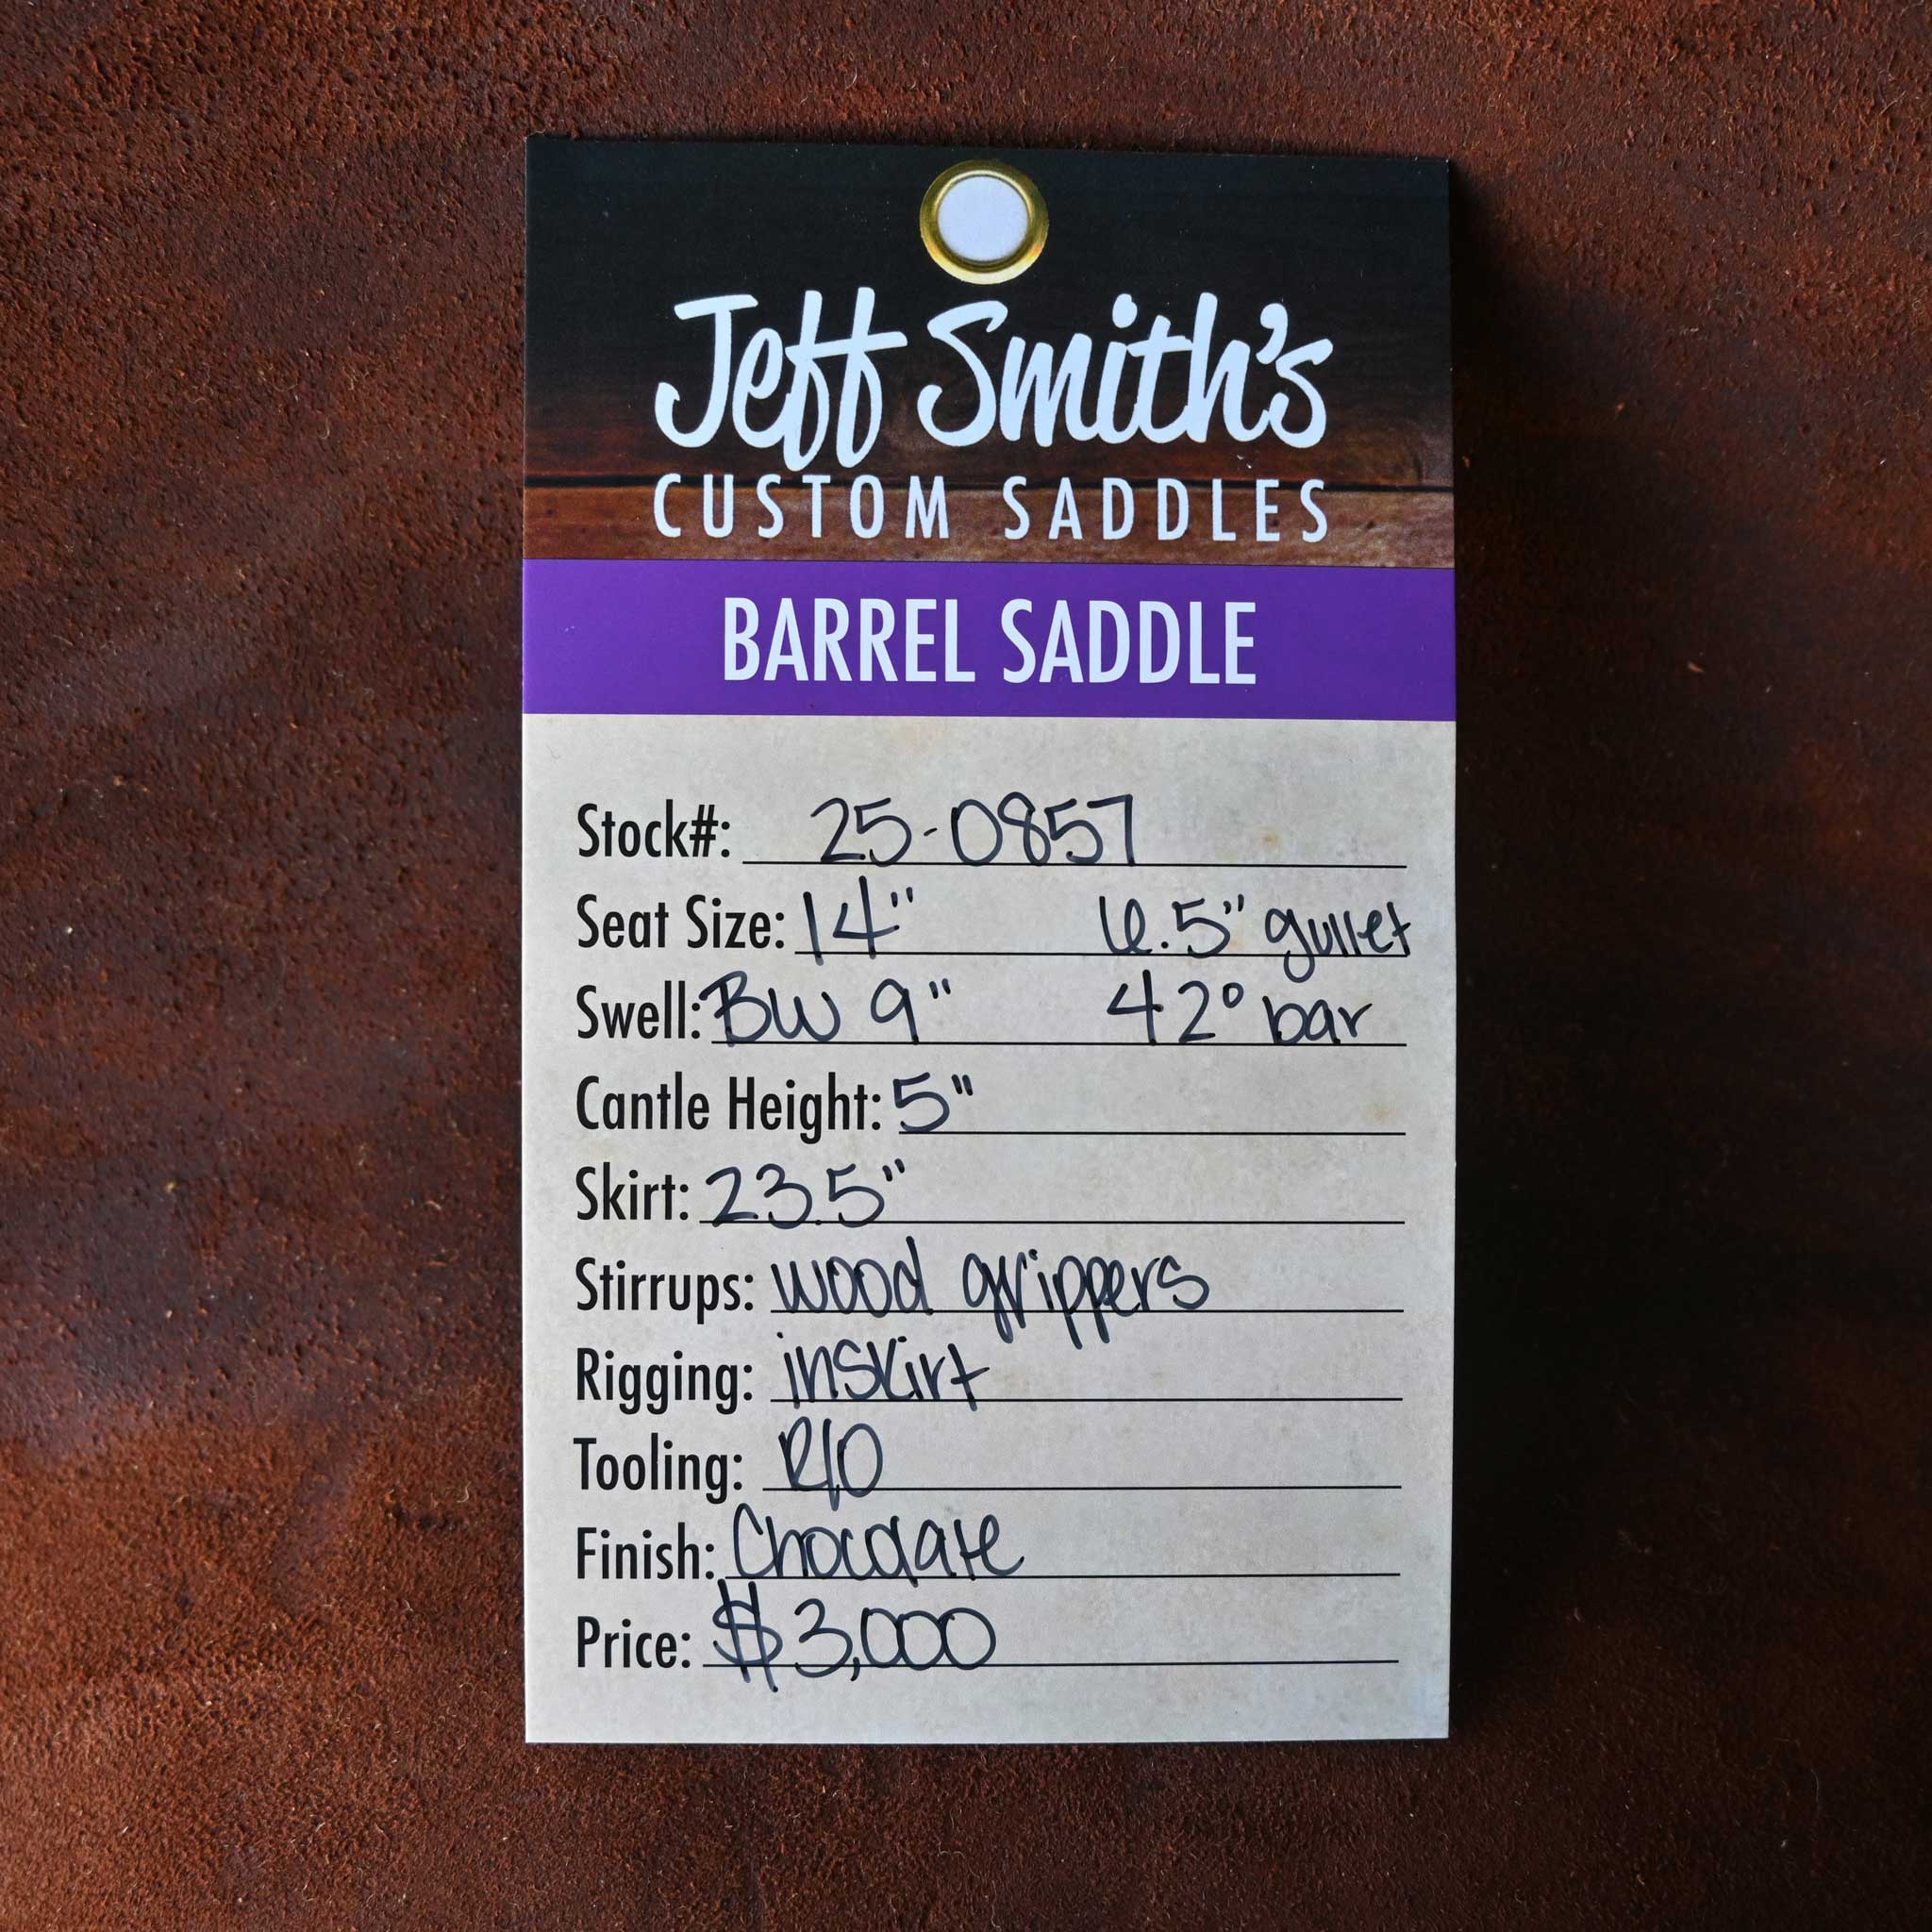 Jeff Smith's
CUSTOM SADDLES
BARREL SADDLE
Stock#: 25-0857
Seat Size: 14" 6.5" gullet
Swell: BW 9" 42° bar
Cantle Height: 5"
Skirt: 23.5"
Stirrups: wood grippers
Rigging: inskirt
Tooling: R/O
Finish: Chocolate
Price: $3,000